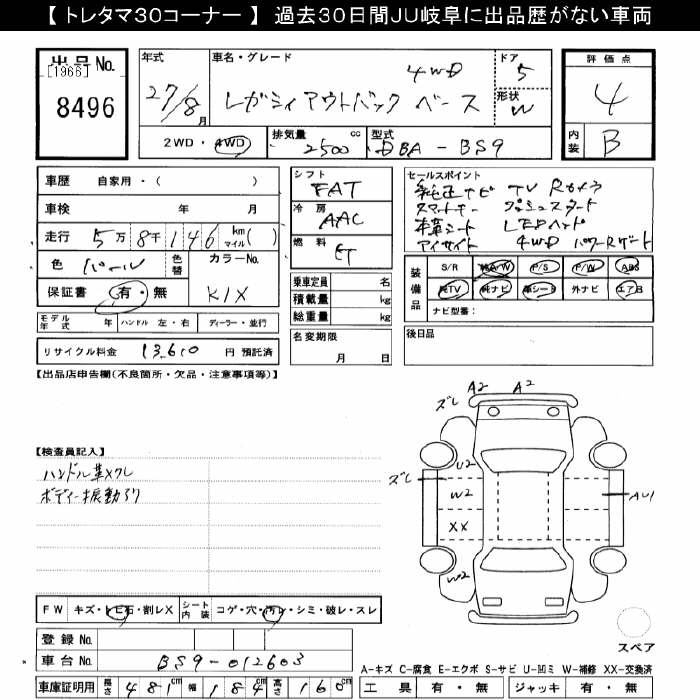 【 トレタマ３０コーナー 】 過去３０日間ＪＵ岐阜に出品歴がない車両
出品 No.
[1966]
8496
年式
27/8月
車名・グレード
4WD
レガシィアウトバック ベース
ドア
5
形状
W
評価点
4
内装
B
2WD・4WD
排気量 2500 cc
型式 DBA - BS9
車歴 自家用・( )
車検 年 月
走行 5万 8千 146 km マイル( )
色 パール
色替
カラーNo.
K1X
保証書 有・無
モデル年式 年 ハンドル 左・右 ディーラー・並行
リサイクル料金 13,610 円 預託済
シフト
FAT
冷房
AAC
燃料
乗車定員 名
積載量 kg
総重量 kg
名変期限
月 日
セールスポイント
純正ナビ TV Rカメラ
スマートキー プッシュスタート
本革シート LEDヘッド
アイサイト 4WD パワーRゲート
装備品
S/R 純A/W P/S P/W ABS
純TV 純ナビ 革シート 外ナビ エアB
ナビ型番:
後日品
【出品店申告欄(不良箇所・欠品・注意事項等)】
【検査員記入】
ハンドル革スレ
ボディー振動有り
A2 A2
ズレ
U2
ズレ
W2
AU1
XX
W2
スペア
FW キズ・トビ石・割レX
シート内装 コゲ・穴・汚レ・シミ・破レ・スレ
登録 No.
車台 No. BS9-012603
車庫証明用 長さ 481cm 幅 184cm 高さ 160cm
A-キズ C-腐食 E-エクボ S-サビ U-凹ミ W-補修 XX-交換済
工具 有・無 ジャッキ 有・無